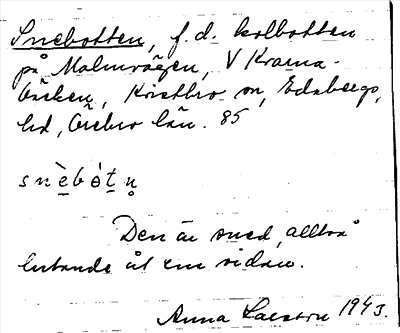 Snebotten, f.d. kolbotten
på Malmvägen, V Kvarna-
bäcken, Kvistbro sn, Edsbergs
hd, Örebro län. 85
snèbót̠n̥
Den är sned, alltså
lutande åt ena sidan.
Anna Larsson 1943.